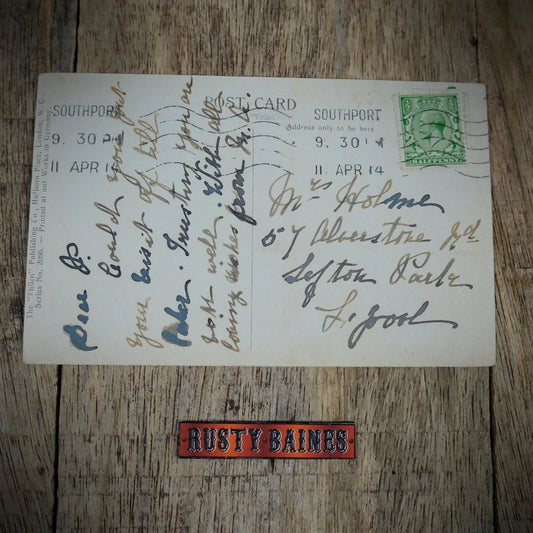 The "Philco" Publishing Co., Holborn Place, London, W.C.
Series No. 2086. Printed at our Works in Germany.
POST CARD
Address only to be here
SOUTHPORT
9.30 PM
11 APR 14
SOUTHPORT
9.30 PM
11 APR 14
HALFPENNY
Dear
Could you put
your visit off till
Trusting you are
well. With
loving wishes from
Mrs Holme
57 Alverstone Rd
Sefton Park
L.pool
RUSTY BAINES